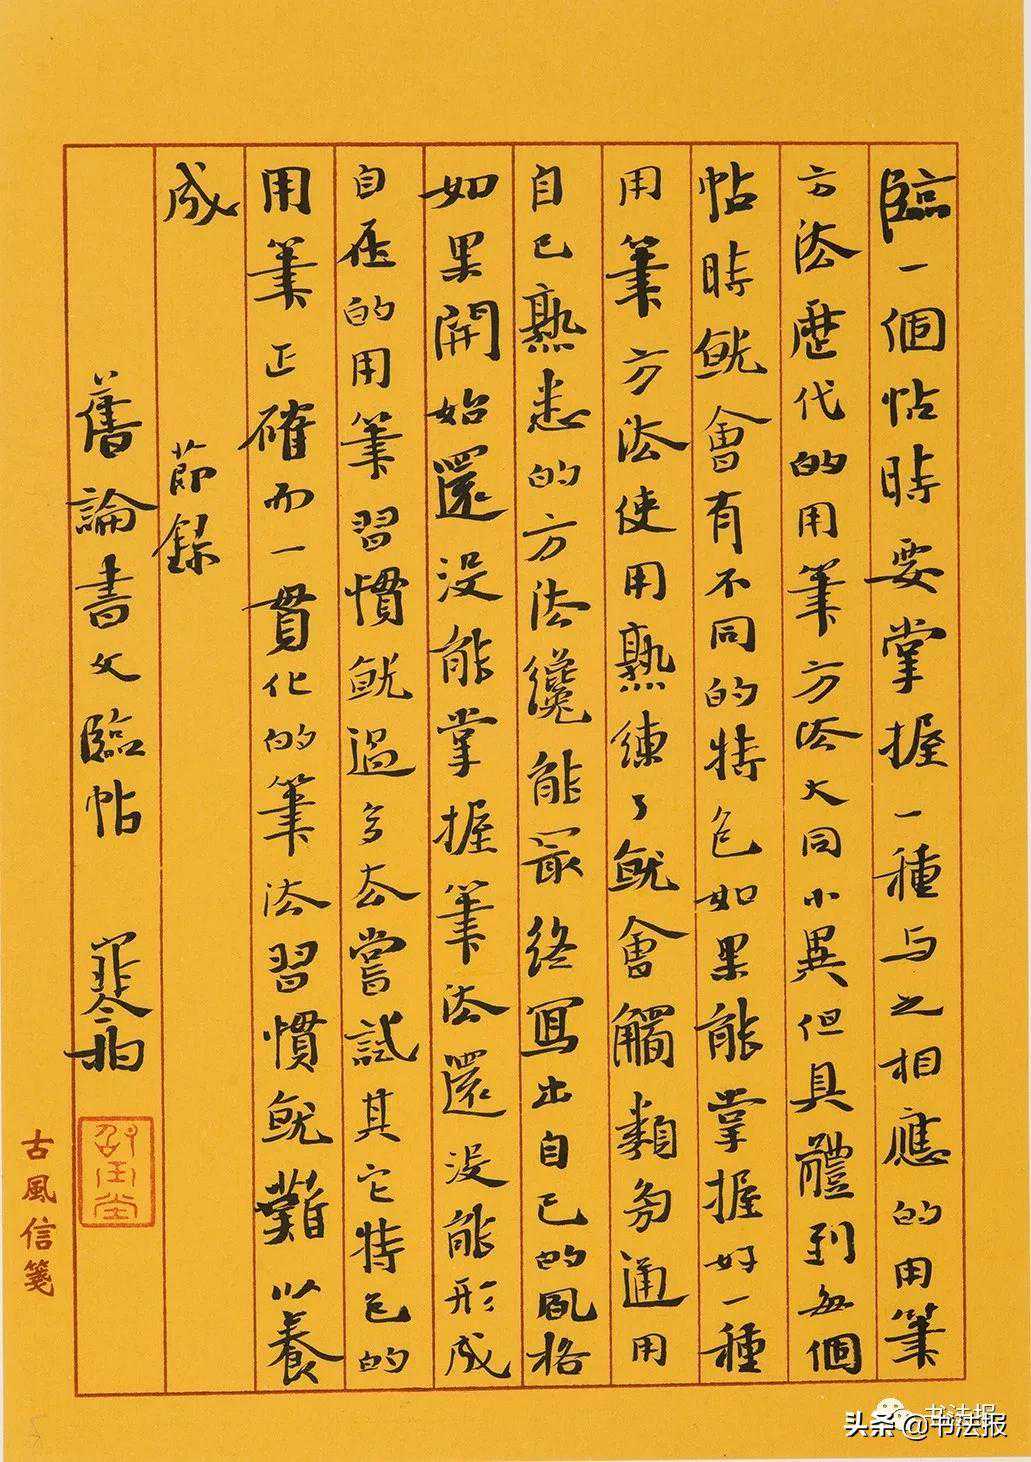 臨一個帖時要掌握一種与之相應的用筆
方法歷代的用筆方法大同小異但具體到每個
帖時就會有不同的特色如果能掌握好一種
用筆方法使用熟練了就會觸類旁通用
自己熟悉的方法纔能最終寫出自己的風格
如果開始還没能掌握筆法還没能形成
自在的用筆習慣就過多去嘗試其它特色的
用筆正確而一貫化的筆法習慣就難以養
成 節錄
舊論書文臨帖
古風信箋
书法报
头条 @书法报